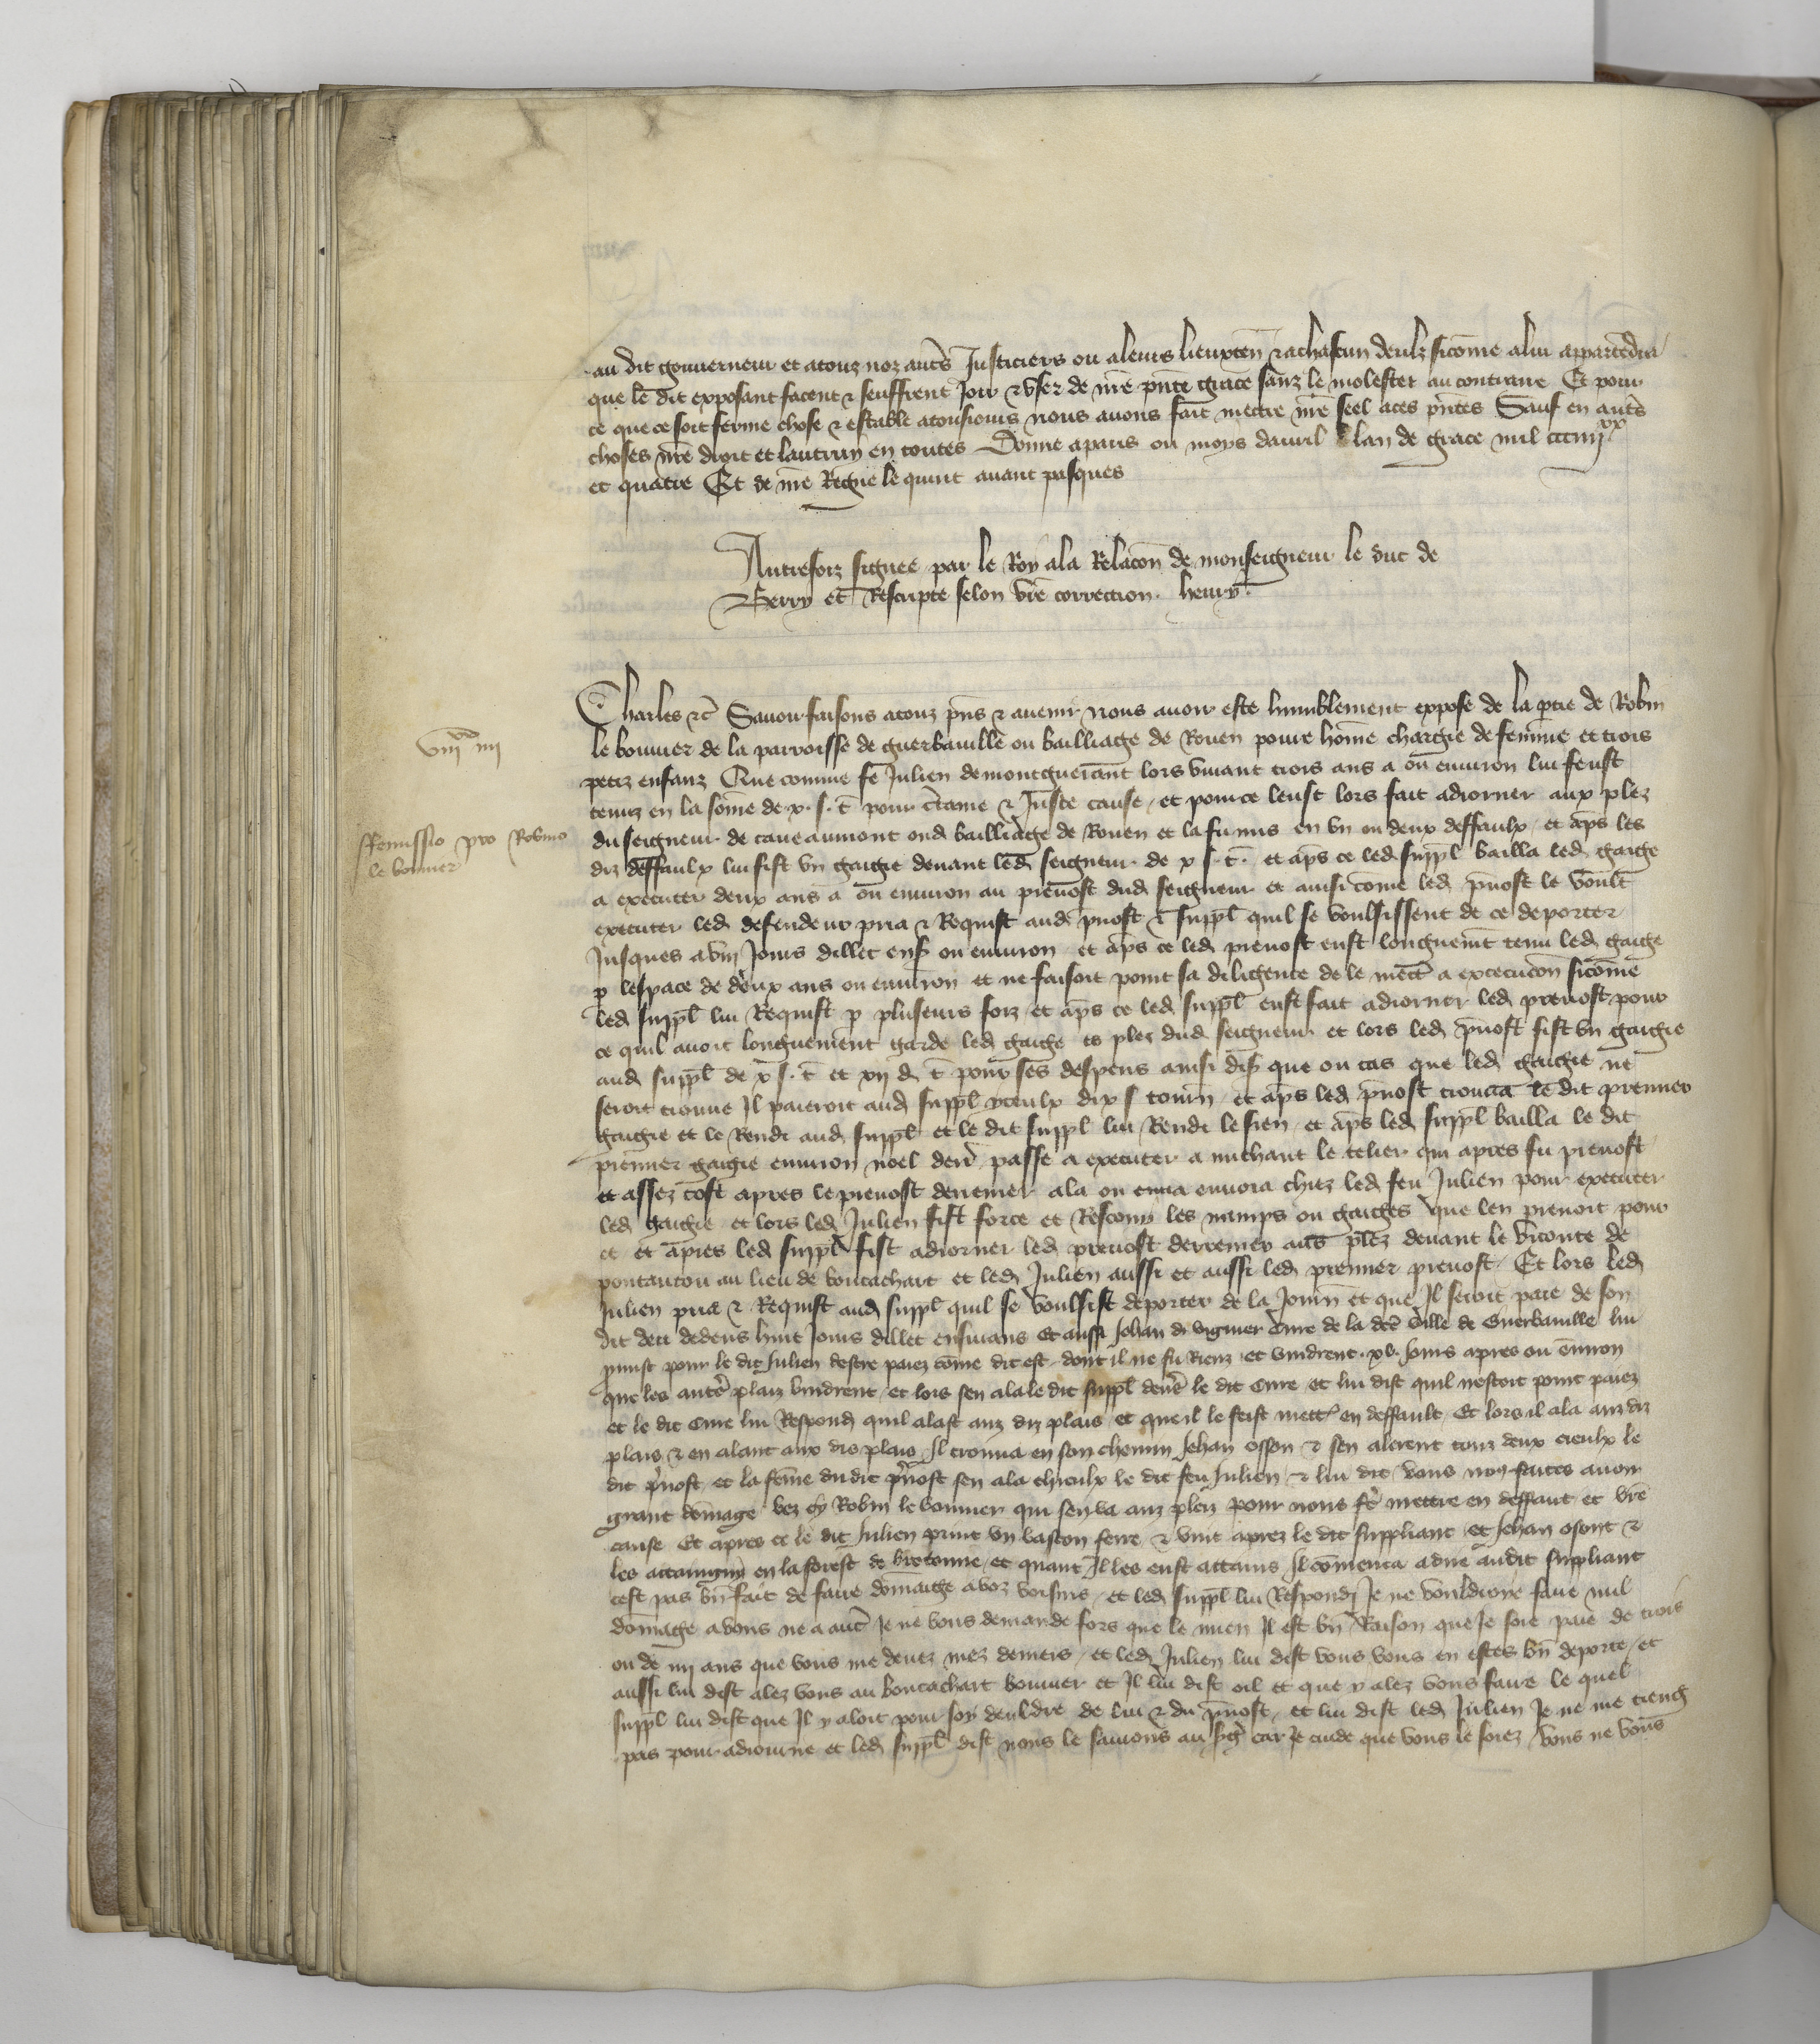 au dit gouverneur et a touz noz autrēs Justiciers ou a leurs lieuxten̄ & a chascun deulz sicōme a lui appartēdra
que le dit exposant facent & seuffrent Joir & user de nrē pn̄te grace sanz le molester au contraire Et pour
ce que ce soit ferme chose & estable a tousiours nous auons fait mettre nrē seel a ces pn̄tes Sauf en autēs
choses nrē droit et lautruy en toutes Donne a paris ou moys dauril lan de grace mil ccc iiij xx
et quatre Et de nrē Regne le quint auant pasques
Autresfoiz signee par le Roy a la Relacōn de monseigneur le duc de
Berry et Rescripte selon vrē correction. henry.
Charles &c̄ Sauoir faisons a touz pn̄s & auenir nous auoir este humblement expose de la p̄tie de Robin
viijxx iiij
le bouuier de la parroisse de guerbauille ou bailliage de Rouen poure hōme chargie de femme et trois
petiz enfanz Que comme feu Julien de montguerant lors viuant trois ans a ou enuiron lui feust
tenuz en la sōme de x. s. t̄ pour c̄taine & Juste cause et pour ce leust lors fait adiorner aux plez
Remissio pro Robino
le bouuier
du seigneur de caueaumont oud bailliage de Rouen et la fu mis en vn ou deux deffaulx et ap̄s les
diz deffaulx lui fist vn gaigie deuant led seigneur de x s. t̄. et ap̄s ce led supp̄l bailla led gaige
a executer deux ans a ou enuiron au preuost dud seigneur et ainsi cōme led p̄uost le voult
executer led defendeur pria & Requist aud p̄uost & supp̄l quil se voulsissent de ce deporter
Jusques a viij Jours dillec ens̄ ou enuiron et ap̄s ce led preuost eust longuemēt tenu led gaige
p lespace de deux ans ou enuiron et ne faisoit point sa diligence de le mect̄ a execucōn sicōme
led supp̄l lui Requist p plusieurs foiz et ap̄s ce led supp̄l eust fait adiorner led preuost pour
ce quil auoit longuement garde led gaige es plez dud seigneur et lors led p̄uost fist vn gaigie
aud supp̄l de x s. t̄ et xij d t̄ pour ses despens ainsi dis̄ que ou cas que led gaigie ne
seroit trouue Il paieroit aud supp̄l yceulx dix s tourn̄ et ap̄s led p̄uost trouua le dit premier
gaigie et le Rendi aud supp̄l et le dit supp̄l lui Rendi le sien et ap̄s led supp̄l bailla le dit
premier gaigie enuiron noel dern̄ passe a executer a michaut le telier qui apres fu preuost
et assez tost apres le preuost derrenier ala ou enuoia chiez led feu Julien pour executer
led gaigie et lors led Julien fist force et Rescouy les namps ou gaiges que len prenoit pour
ce et apres led supp̄l fist adiorner led preuost derrenier aus plez deuant le viconte de
pontautou au lieu de boucachart et led Julien aussi et aussi led premier preuost Et lors led
Julien pria & Requist aud supp̄l quil se voulsist deporter de la Journ̄ et que Il seroit paie de son
dit deu dedens huit Jours dillec ensuians Et aussi Jehan di vignier Cure de la dc̄e ville de Guerbauille lui
p̄mist pour le dit Julien destre paiez cōme dit est dont il ne fu Riens et vindrent. xv. Jours apres ou enuiron
que les autrēs plaiz vindrent et lors sen ala le dit supp̄l deūs le dit Cure et lui dist quil nestoit point paiez
et le dit Cure lui Respond quil alast auz diz plais et que il le feist mett̄ en deffault Et lors il ala auz diz
plais & en alant aux dis plais Il trouua en son chemin Jehan osson & sen alerent touz deux ceulx le
dit p̄uost et la fēme du dit p̄uost sen ala chieulx le dit feu Julien & lui dit vous nous faites auoir
grant dōmage vez cy Robin le bouuier qui sen va auz plez pour nous fē mettre en deffaut et vrē
cause Et apres ce le dit Julien print vn baston ferre & vint aprez le dit suppliant et Jehan osont &
les attaingny en la forest de bretonne et quant Il les eust attains Il cōmenca a dire au dit suppliant
cest pas bn̄ fait de faire domaige a voz voisins et led supp̄l lui Respondi Je ne vouldroie faire nul
dōmage a vous ne a aut̄ Je ne vous demande fors que le mien Il est bn̄ Raison que Je soie paie de trois
ou de iiij ans que vous me deuez mez deniers et led Julien lui dist vous vous en estes bn̄ deporte et
aussi lui dist alez vous au boucachart bouuier et Il lui dist oil et que y alez vous faire le quel
supp̄l lui dist que Il y aloit pour soy deuldre de lui & du p̄uost et lui dist led Julien Je ne me tieng
pas pour adiourne et led supp̄l dist nous le saurons au siḡ car Je cuide que vous le soiez vous ne vous